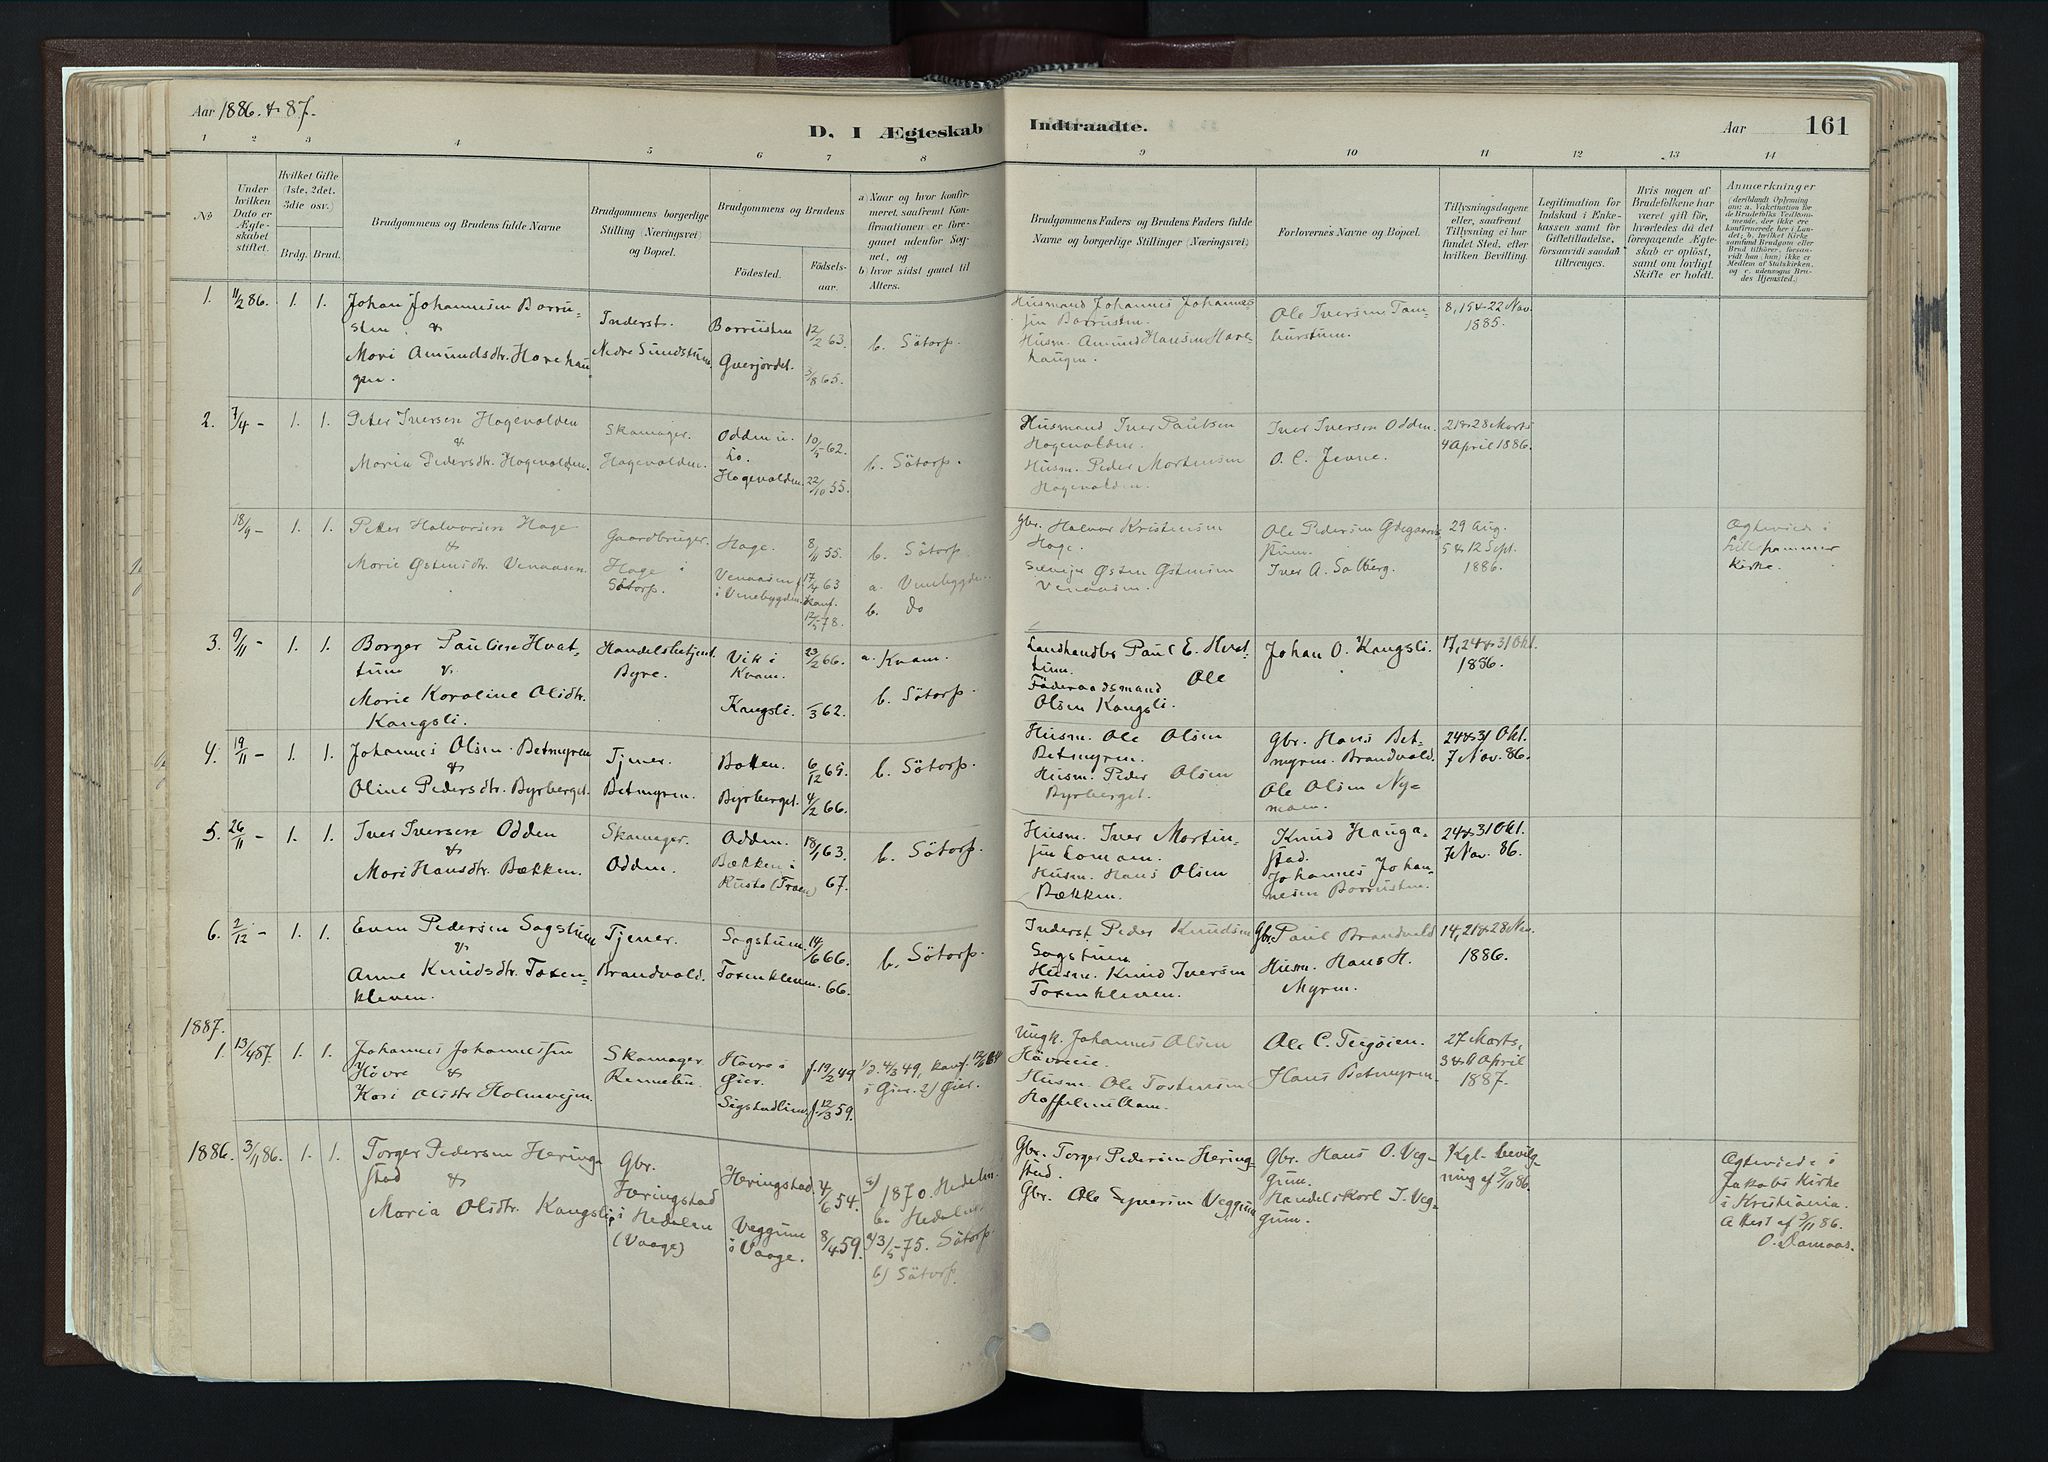 Aar 1886 & 87.
D. I Ægteskab
Indtraadte.
Aar
161
1 2 3 4 5 6 7 8 9 10 11 12 13 14
No
Under
hvilken
Dato er
Ægte-
skabet
stiftet.
Hvilket Gifte
(1ste, 2det.
3die osv.)
Brdg.
Brud.
Brudgommens og Brudens fulde Navne
Brudgommens borgerlige
Stilling (Næringsvei)
og Bopæl.
Brudgommens og Brudens
Födested.
Födsels-
aar.
a) Naar og hvor konfir-
meret, saafremt Kon-
firmationen er fore-
gaaet udenfor Sog-
net, og
b) hvor sidst gaaet til
Alters.
Brudgommens Faders og Brudens Faders fulde
Navne og borgerlige Stillinger (Næringsvei)
Forlovernes Navne og Bopæl.
Tillysningsdagene
eller, saafremt
Tillysning ei har
fundet Sted, efter
hvilken Bevilling.
Legitimation for
Indskud i Enke-
kassen samt for
Giftetilladelse,
forsaavidt saadan
tiltrænges.
Hvis nogen af
Brudefolkene har
været gift för,
hvorledes da det
foregaaende Ægte-
skab er oplöst,
samt om lovligt
Skifte er holdt.
Anmærkninger
(deriblandt Oplysning
om: a. Vaksination for
de Brudefolks Vedkom-
mende, der ikke ere
konfirmerede her i Lan-
det; b. hvilket Kirke-
samfund Brudgom eller
Brud tilhörer, forsaa-
vidt han (hun) ikke er
Medlem af Statskirken,
og c. udensogns Bru-
des Hjemsted.)
1. 11/2 86. 1. 1.
Johan Johannesen Borru-
sten &
Mari Amundsdtr. Harehau-
gen.
Inderst.
Nedre Sundstuen.
Borrusten
Gverjordet.
12/2 63.
3/8 65.
b. Sötorp.
Husmand Johannes Johannes-
sen Borrusten.
Husm. Amund Hansen Hare-
haugen.
Ole Iversen Tom-
burstuen.
8, 15 & 22 Nov.
1885.
2. 7/4 - 1. 1.
Peter Iversen Hagevolden
&
Maria Pedersdtr. Hagevolden.
Skomager.
Hagevolden.
Odden u.
Lo.
Hagevolden.
10/5 62.
22/10 55.
b. Sötorp.
Husmand Iver Paulsen
Hagevolden.
Husm. Peder Mortensen
Hagevolden.
Iver Iversen Odden.
O. C. Jevne.
21 & 28 Marts
4 April 1886.
18/9 - 1. 1.
Peter Halvorsen Hage
&
Marie Østensdtr. Venaasen.
Gaardbruger.
Hage i
Sötorp.
Hage.
Venaasen
i Venebygden.
8/11 55.
17/4 63
konf.
12/5 78.
b. Sötorp.
a. Venebygden.
b. do
Gbr. Halvor Kristensen
Hage.
Østen Østensen
Venaasen.
Ole Pedersen Ødegaard-
stuen.
Iver A. Solberg.
29 Aug.
5 & 12 Sept.
1886.
Ægteviede i
Lillehammer
Kirke.
3. 9/11 - 1. 1.
Borger Paulsen Hvat-
tum &
Marie Karoline Olsdtr.
Kangsli.
Handelsbetjent.
Byre.
Vik i
Kvam.
Kangsli.
23/2 66.
/3 62.
a. Kvam.
b. Sötorp.
Landhandler Paul E. Hvat-
tum.
Föderaadsmand Ole
Olsen Kangsli.
Johan O. Kangsli.
17, 24 & 31 Okt.
1886.
4. 19/11 - 1. 1.
Johannes Olsen Betmyren
&
Oline Pedersdtr. Byrberget.
Tjener.
Betmyren.
Bakken.
Byrberget.
6/12 65.
4/2 66.
b. Sötorp.
Husm. Ole Olsen
Betmyren.
Husm. Peder Olsen
Byrberget.
Gbr. Hans Bet-
myren. Brandvold.
Ole Olsen Ny-
moen.
24 & 31 Okt.
7 Nov. 86.
5. 26/11 - 1. 1.
Iver Iversen Odden
&
Mari Hansdtr. Bækken.
Skomager.
Odden.
Odden.
Bækken i
Rusto (Fron)
18/1 63.
67.
b. Sötorp.
Husm. Iver Morten-
sen Lomoen.
Husm. Hans Olsen
Bækken.
Knud Hauga-
stad.
Johannes Johan-
nesen Borrusten.
24 & 31 Okt.
7 Nov. 86.
6. 2/12 - 1. 1.
Even Pedersen Sogstuen
&
Anne Knudsdtr. Toxen-
kleven.
Tjener.
Brandvold.
Sogstuen.
Toxenkleven.
14/6 66.
66.
b. Sötorp.
Inderst Peder Knudsen
Sogstuen
Husm. Knud Iversen
Toxenkleven.
Gbr. Paul Brandvold
Husm. Hans H.
Myren.
14, 21 & 28 Nov.
1886.
1887.
1. 13/4 87. 1. 1.
Johannes Johannessen
Hövre &
Kari Olsdtr Holmvejen.
Skomager
Hövre i
Øier.
Sigstadlien.
f. 19/2 49
f. 12/3 59.
d. 4/3 49, konf.
i Øier. 2) Øier.
Ungk. Johannes Olsen
Hövreeie.
Husm. Ole Tostensen
Ole C. Teigöien.
Hans Betmyren.
27 Marts,
3 & April
1887.
1886. 3/11 86. 1. 1.
Torger Pedersen Hering-
stad &
Maria Olsdtr. Kangsli.
Gbr.
Heringstad
i Hedalen
(Vaage)
Heringstad
Veggum
i Vaage.
4/6 54.
8/4 59.
a) 1870. Hedalen.
b. Hedalen.
a) 3/5 75. Sötorp.
b) Sötorp.
Gbr. Torger Pedersen Hering-
stad.
Gbr. Ole Syversen Veggum
Gbr. Hans O. Veg-
gum.
Handelskarl I. Veg-
gum.
Kgl. bevilg-
ning af 2/11 86.
Ægteviede i
Jakobs Kirke
i Kristiania.
Attest af 3/11 86.